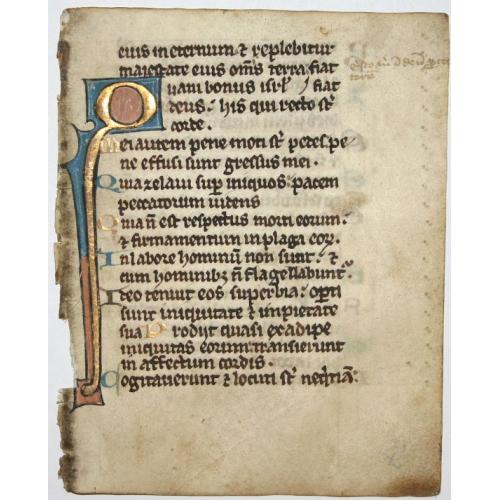 eius in eternum ⁊ replebitur
maiestate eius om̅s terra fiat
Quam bonus isrl̕ / fiat
deus : his qui recto st̅
corde .
Mei autem pene moti st̅ pedes : pe
ne effusi sunt gressus mei .
Quia zelaui sup̲ iniquos : pacem
peccatorum uidens
Quia n̅ est respectus morti eorum :
⁊ firmamentum in plaga eoꝝ .
In labore hominum non sunt : ⁊
cum hominibꝫ n̅ flagellabunt̕ .
Ideo tenuit eos superbia : op̲ti
sunt iniquitate ⁊ impietate
sua Prodijt quasi ex adipe
iniquitas eorum : transierunt
in affectum cordis .
Cogitauerunt ⁊ locuti st̅ neq̅tia̅ :